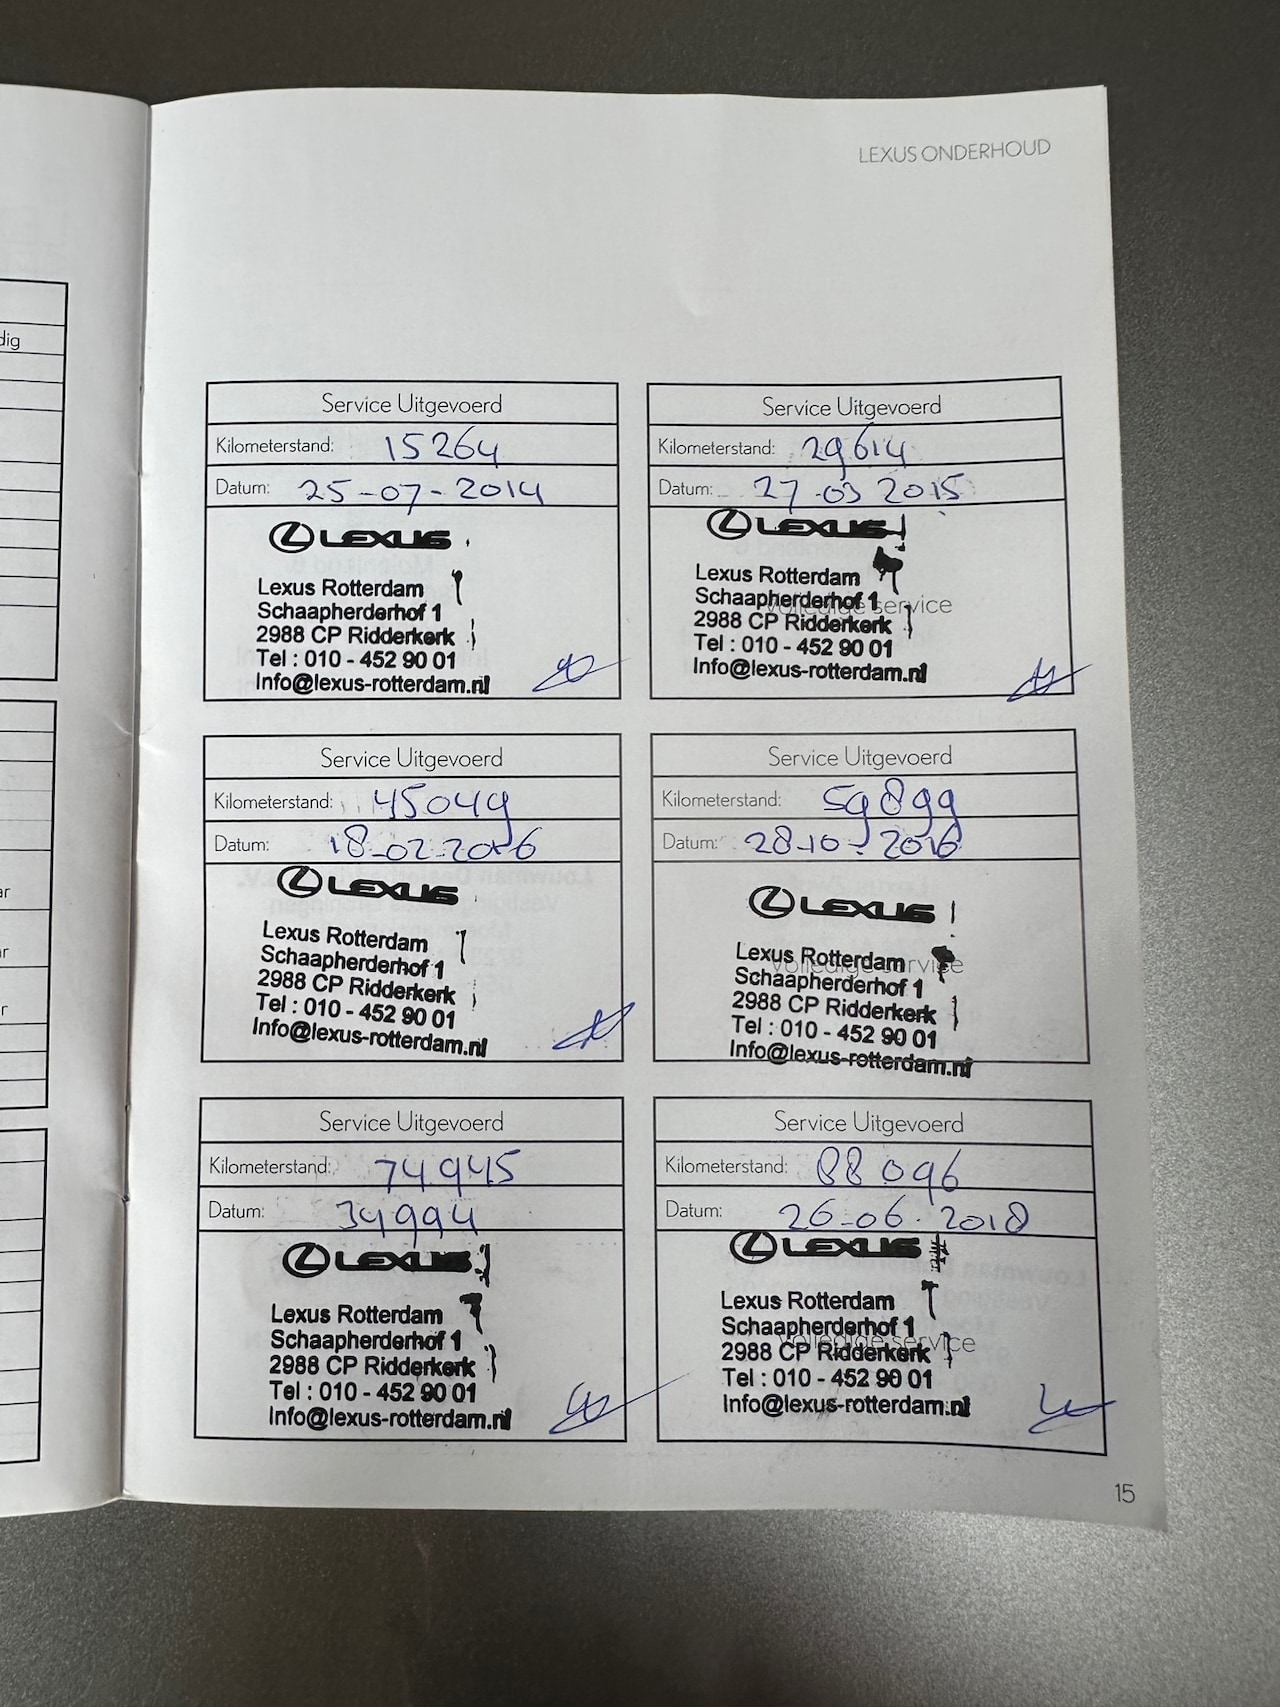 LEXUS ONDERHOUD
dig
ar
ar
r
Service Uitgevoerd
Kilometerstand: 15264
Datum: 25-07-2014
LEXUS
Lexus Rotterdam
Schaapherderhof 1
2988 CP Ridderkerk
Tel : 010 - 452 90 01
Info@lexus-rotterdam.nl
Service Uitgevoerd
Kilometerstand: 29614
Datum: 27-03 2015
LEXUS
Lexus Rotterdam
Schaapherderhof 1
Volledige service
2988 CP Ridderkerk
Tel : 010 - 452 90 01
Info@lexus-rotterdam.nl
Service Uitgevoerd
Kilometerstand: 45049
Datum: 18-02-2016
LEXUS
Lexus Rotterdam
Schaapherderhof 1
2988 CP Ridderkerk
Tel : 010 - 452 90 01
Info@lexus-rotterdam.nl
Service Uitgevoerd
Kilometerstand: 59899
Datum: 28-10-2016
LEXUS
Lexus Rotterdam
Volledige service
Schaapherderhof 1
2988 CP Ridderkerk
Tel : 010 - 452 90 01
Info@lexus-rotterdam.nl
Service Uitgevoerd
Kilometerstand: 74945
Datum: 34994
LEXUS
Lexus Rotterdam
Schaapherderhof 1
2988 CP Ridderkerk
Tel : 010 - 452 90 01
Info@lexus-rotterdam.nl
Service Uitgevoerd
Kilometerstand: 88096
Datum: 26-06-2018
LEXUS
Lexus Rotterdam
Schaapherderhof 1
Volledige service
2988 CP Ridderkerk
Tel : 010 - 452 90 01
Info@lexus-rotterdam.nl
15